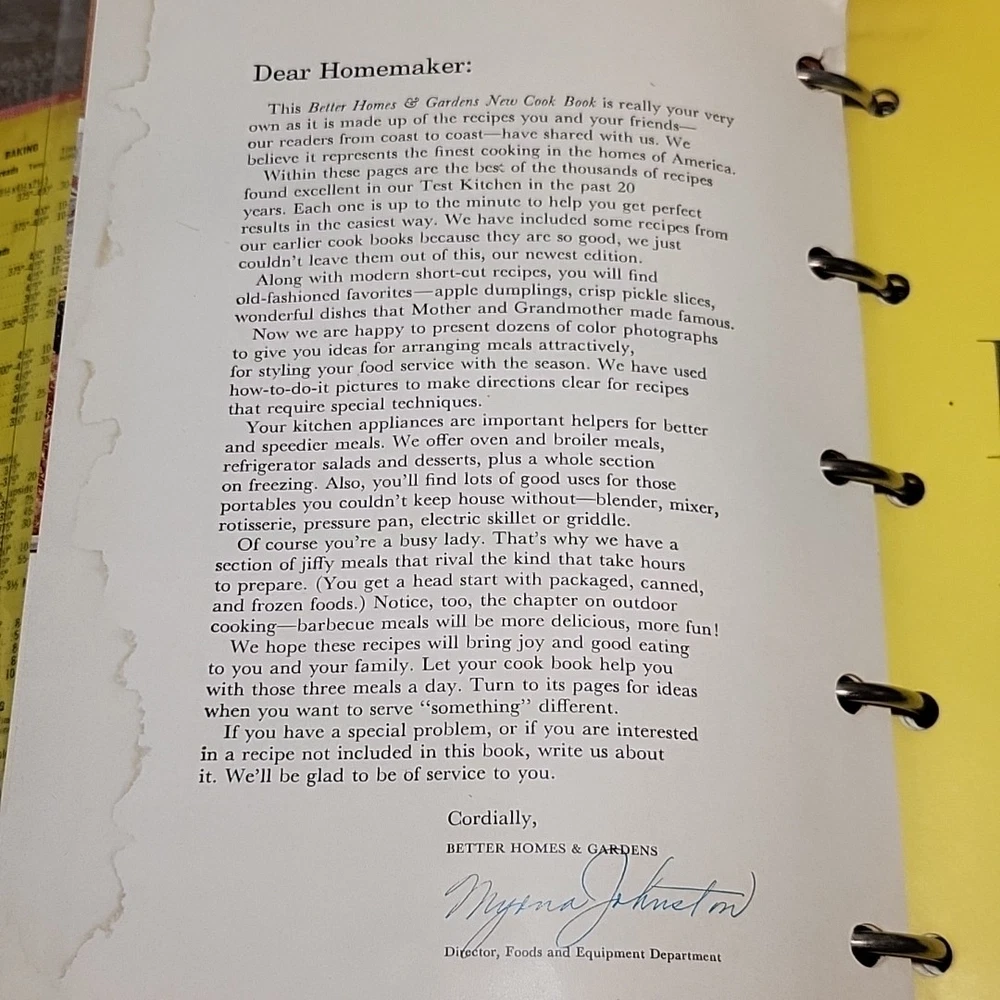 Dear Homemaker:
This Better Homes & Gardens New Cook Book is really your very
own as it is made up of the recipes you and your friends—
our readers from coast to coast—have shared with us. We
believe it represents the finest cooking in the homes of America.
Within these pages are the best of the thousands of recipes
found excellent in our Test Kitchen in the past 20
years. Each one is up to the minute to help you get perfect
results in the easiest way. We have included some recipes from
our earlier cook books because they are so good, we just
couldn't leave them out of this, our newest edition.
Along with modern short-cut recipes, you will find
old-fashioned favorites—apple dumplings, crisp pickle slices,
wonderful dishes that Mother and Grandmother made famous.
Now we are happy to present dozens of color photographs
to give you ideas for arranging meals attractively,
for styling your food service with the season. We have used
how-to-do-it pictures to make directions clear for recipes
that require special techniques.
Your kitchen appliances are important helpers for better
and speedier meals. We offer oven and broiler meals,
refrigerator salads and desserts, plus a whole section
on freezing. Also, you'll find lots of good uses for those
portables you couldn't keep house without—blender, mixer,
rotisserie, pressure pan, electric skillet or griddle.
Of course you're a busy lady. That's why we have a
section of jiffy meals that rival the kind that take hours
to prepare. (You get a head start with packaged, canned,
and frozen foods.) Notice, too, the chapter on outdoor
cooking—barbecue meals will be more delicious, more fun!
We hope these recipes will bring joy and good eating
to you and your family. Let your cook book help you
with those three meals a day. Turn to its pages for ideas
when you want to serve "something" different.
If you have a special problem, or if you are interested
in a recipe not included in this book, write us about
it. We'll be glad to be of service to you.
Cordially,
BETTER HOMES & GARDENS
Myrna Johnston
Director, Foods and Equipment Department
BAKING